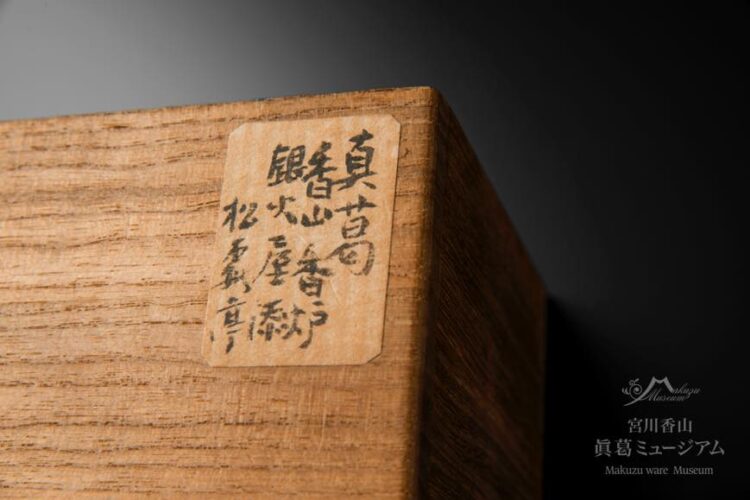 真葛
香山香炉
銀火屋添
松 亭
Makuzu
Museum
宮川香山
眞葛ミュージアム
Makuzu ware Museum